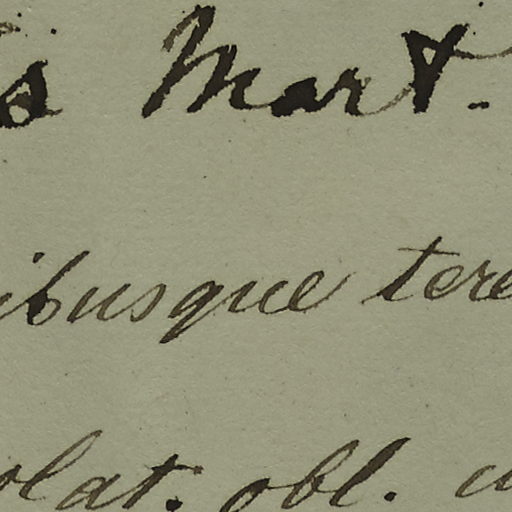 s Mart.
ibusque tere
olat. obl.